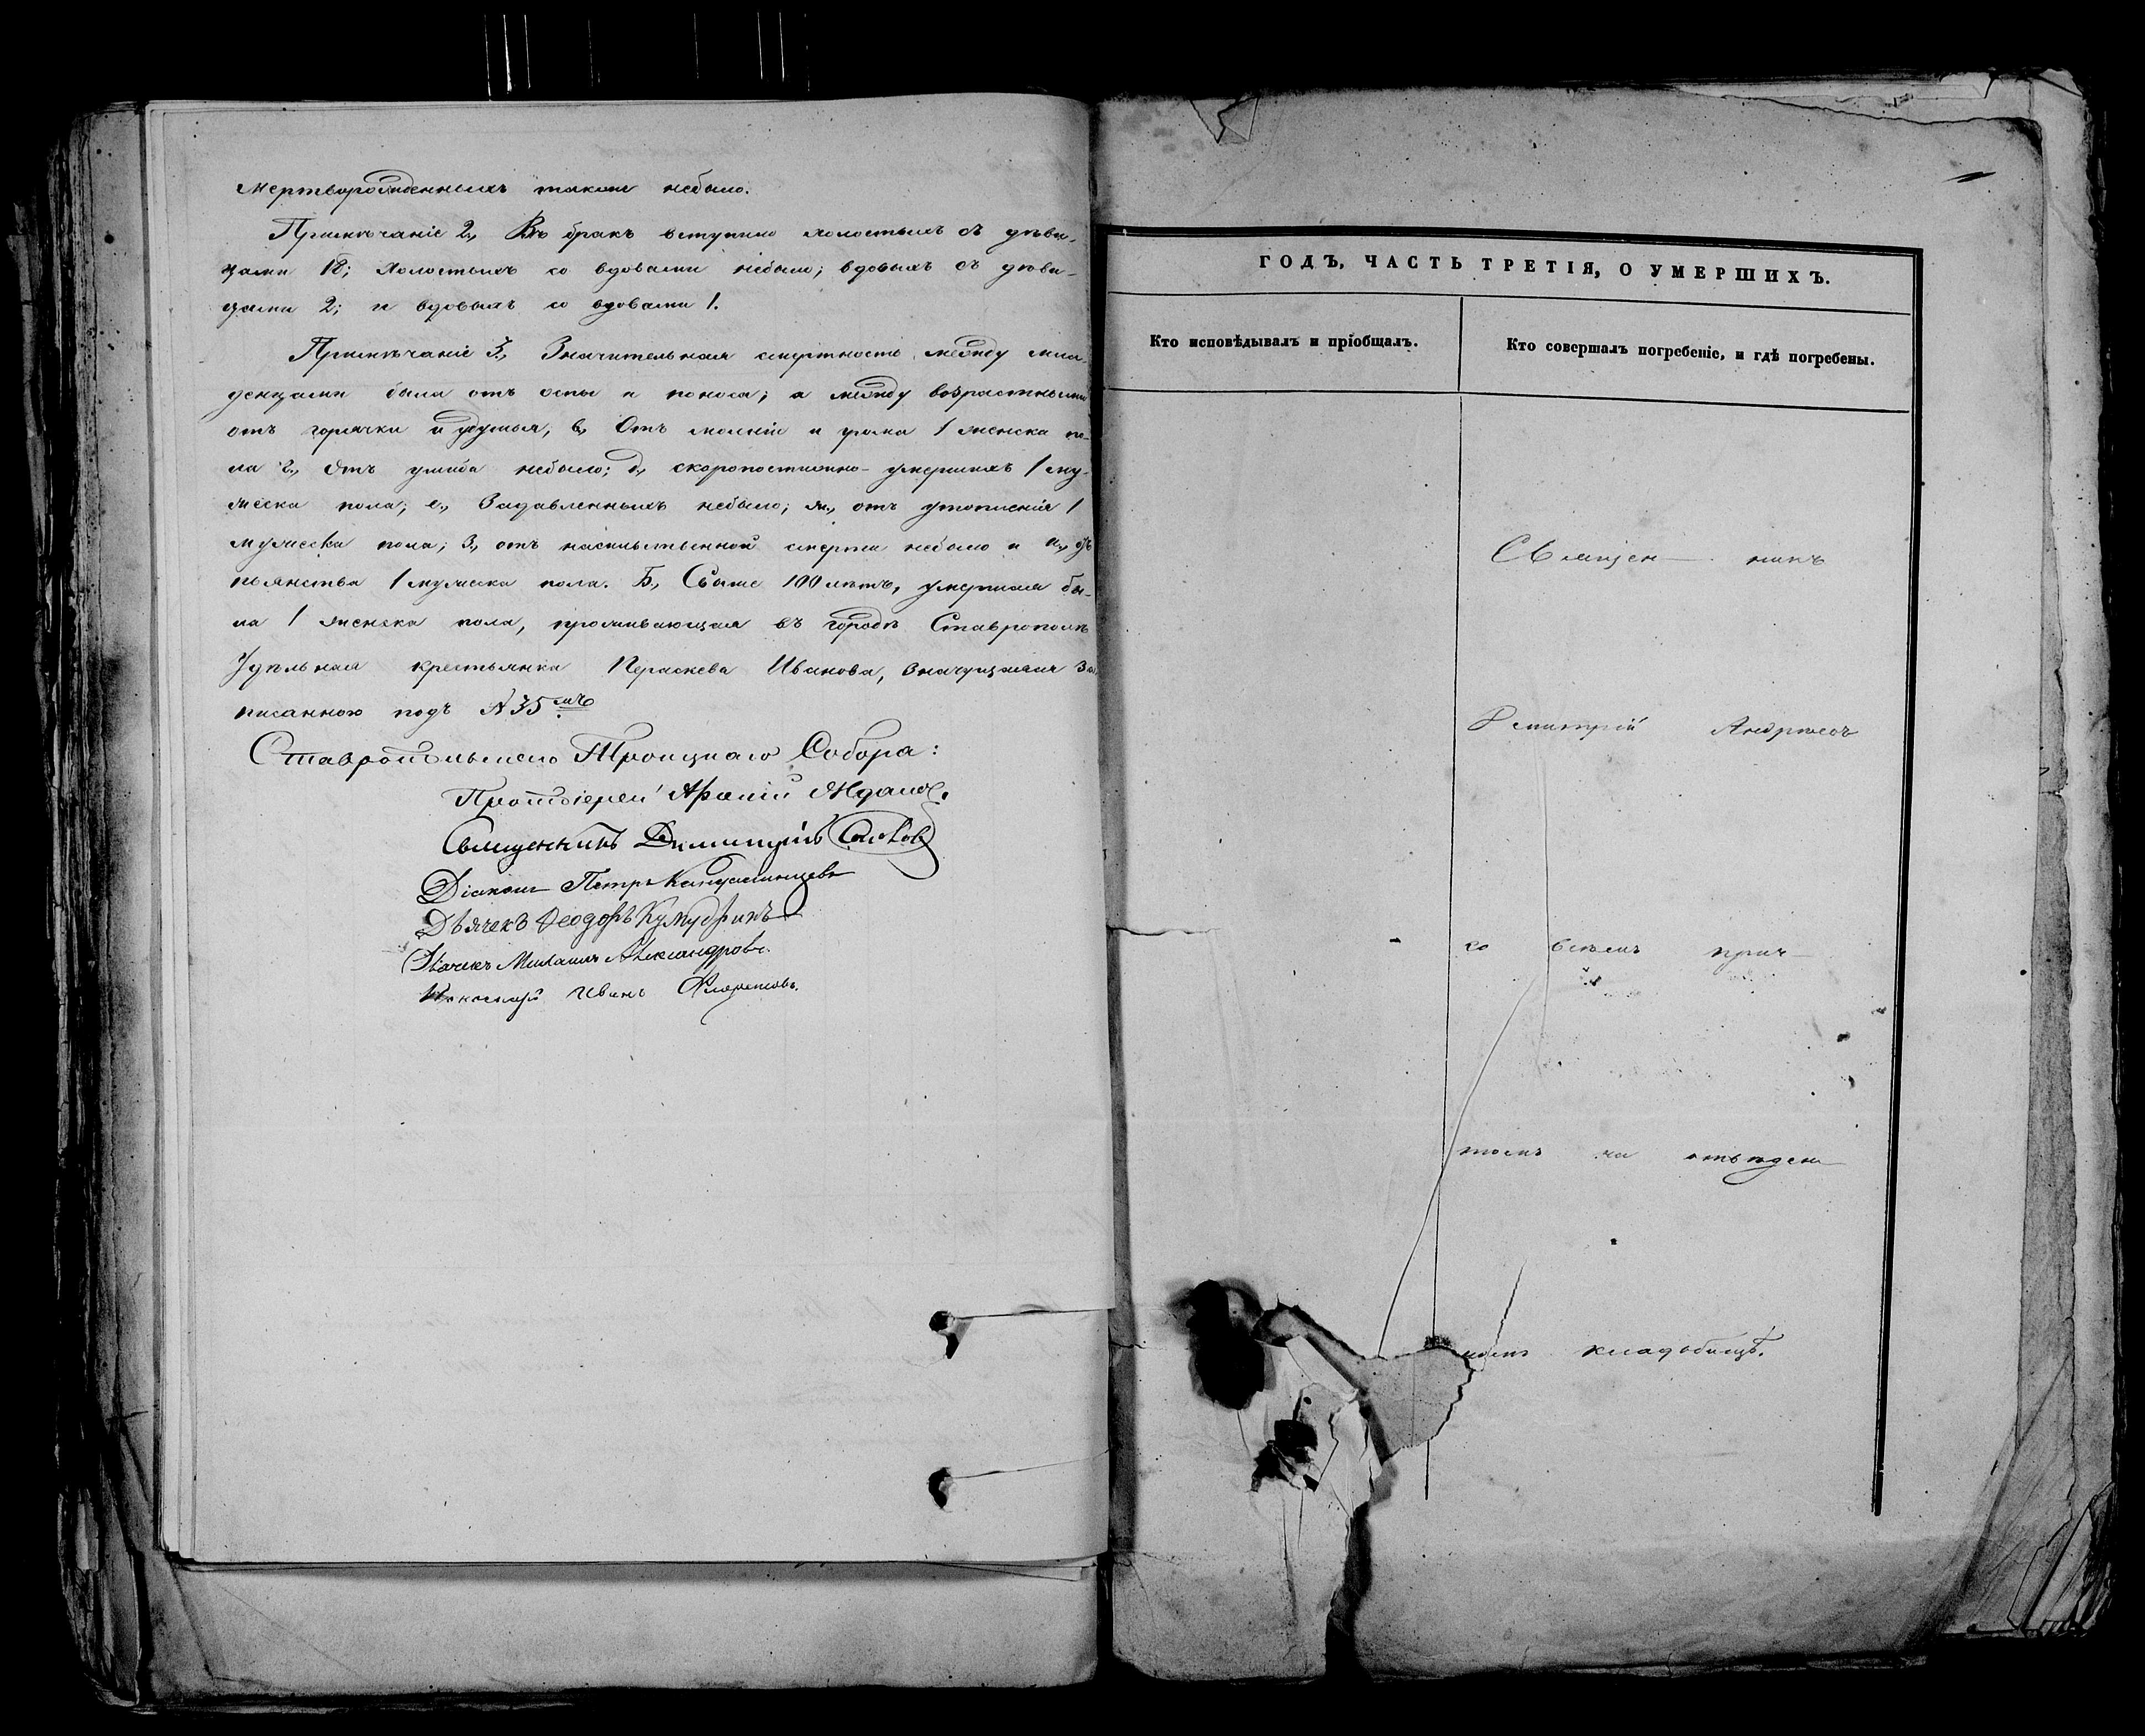 мертворожденныхъ также небыло.
Примѣчаніе 2., Въ бракъ вступило холостыхъ съ дѣви-
цами 18; холостыхъ со вдовами небыло; вдовыхъ съ дѣви-
цами 2; и вдовыхъ со вдовами 1.
Примѣчаніе 3., Значительная смертность между мла-
денцами была отъ оспы и поноса; а между возрастными
отъ горячки и удушья, в., Отъ молніи и грома 1 женска по-
ла г., Отъ ушиба небыло; д., скоропостижно-умершихъ 1 му-
жеска пола; е., Задавленныхъ небыло; ж., отъ утопленія 1
мужеска пола; з., отъ насильственной смерти небыло и и., отъ
пьянства 1 мужеска пола. Б., Свыше 100 лѣтъ, умершая бы-
ла 1 женска пола, проживающая въ городѣ Ставрополѣ
Удѣльная крестьянка Пераскева Иванова, значущаяся за-
писанною подъ № 35 мъ
Ставропольскаго Троицкаго Собора:
Протоіерей Ждановъ.
Священникъ Димитрій
Діаконъ Петръ
Дьячекъ Ѳеодоръ
Дьячекъ Михаилъ Александровъ.
Пономарь Иванъ
ГОДЪ, ЧАСТЬ ТРЕТІЯ, О УМЕРШИХЪ.
Кто исповѣдывалъ и пріобщалъ.
Кто совершалъ погребеніе, и гдѣ погребены.
Священ- никъ
Димитрій Андреевъ
со всѣмъ прич-
томъ на отведен-
номъ кладбищѣ.